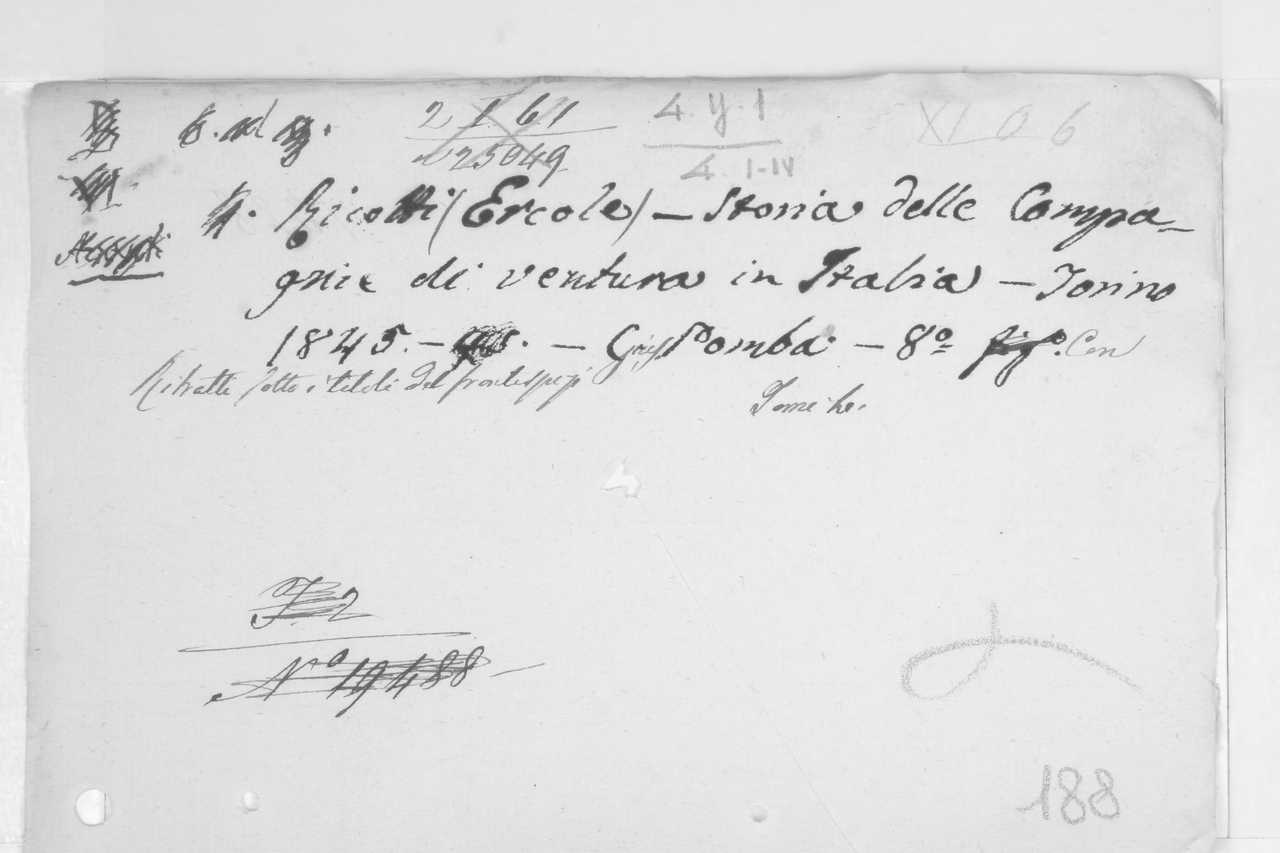 2 1. 61
25049
4. y. 1
4. I-IV
XI 0 6
Ricotti (Ercole) — Storia delle Compa-
gnie di ventura in Italia — Torino
1845. — — Pomba — 8º figº. Con
Ritratti sotto i titoli del frontespizj
Tomi
Nº 19488
188